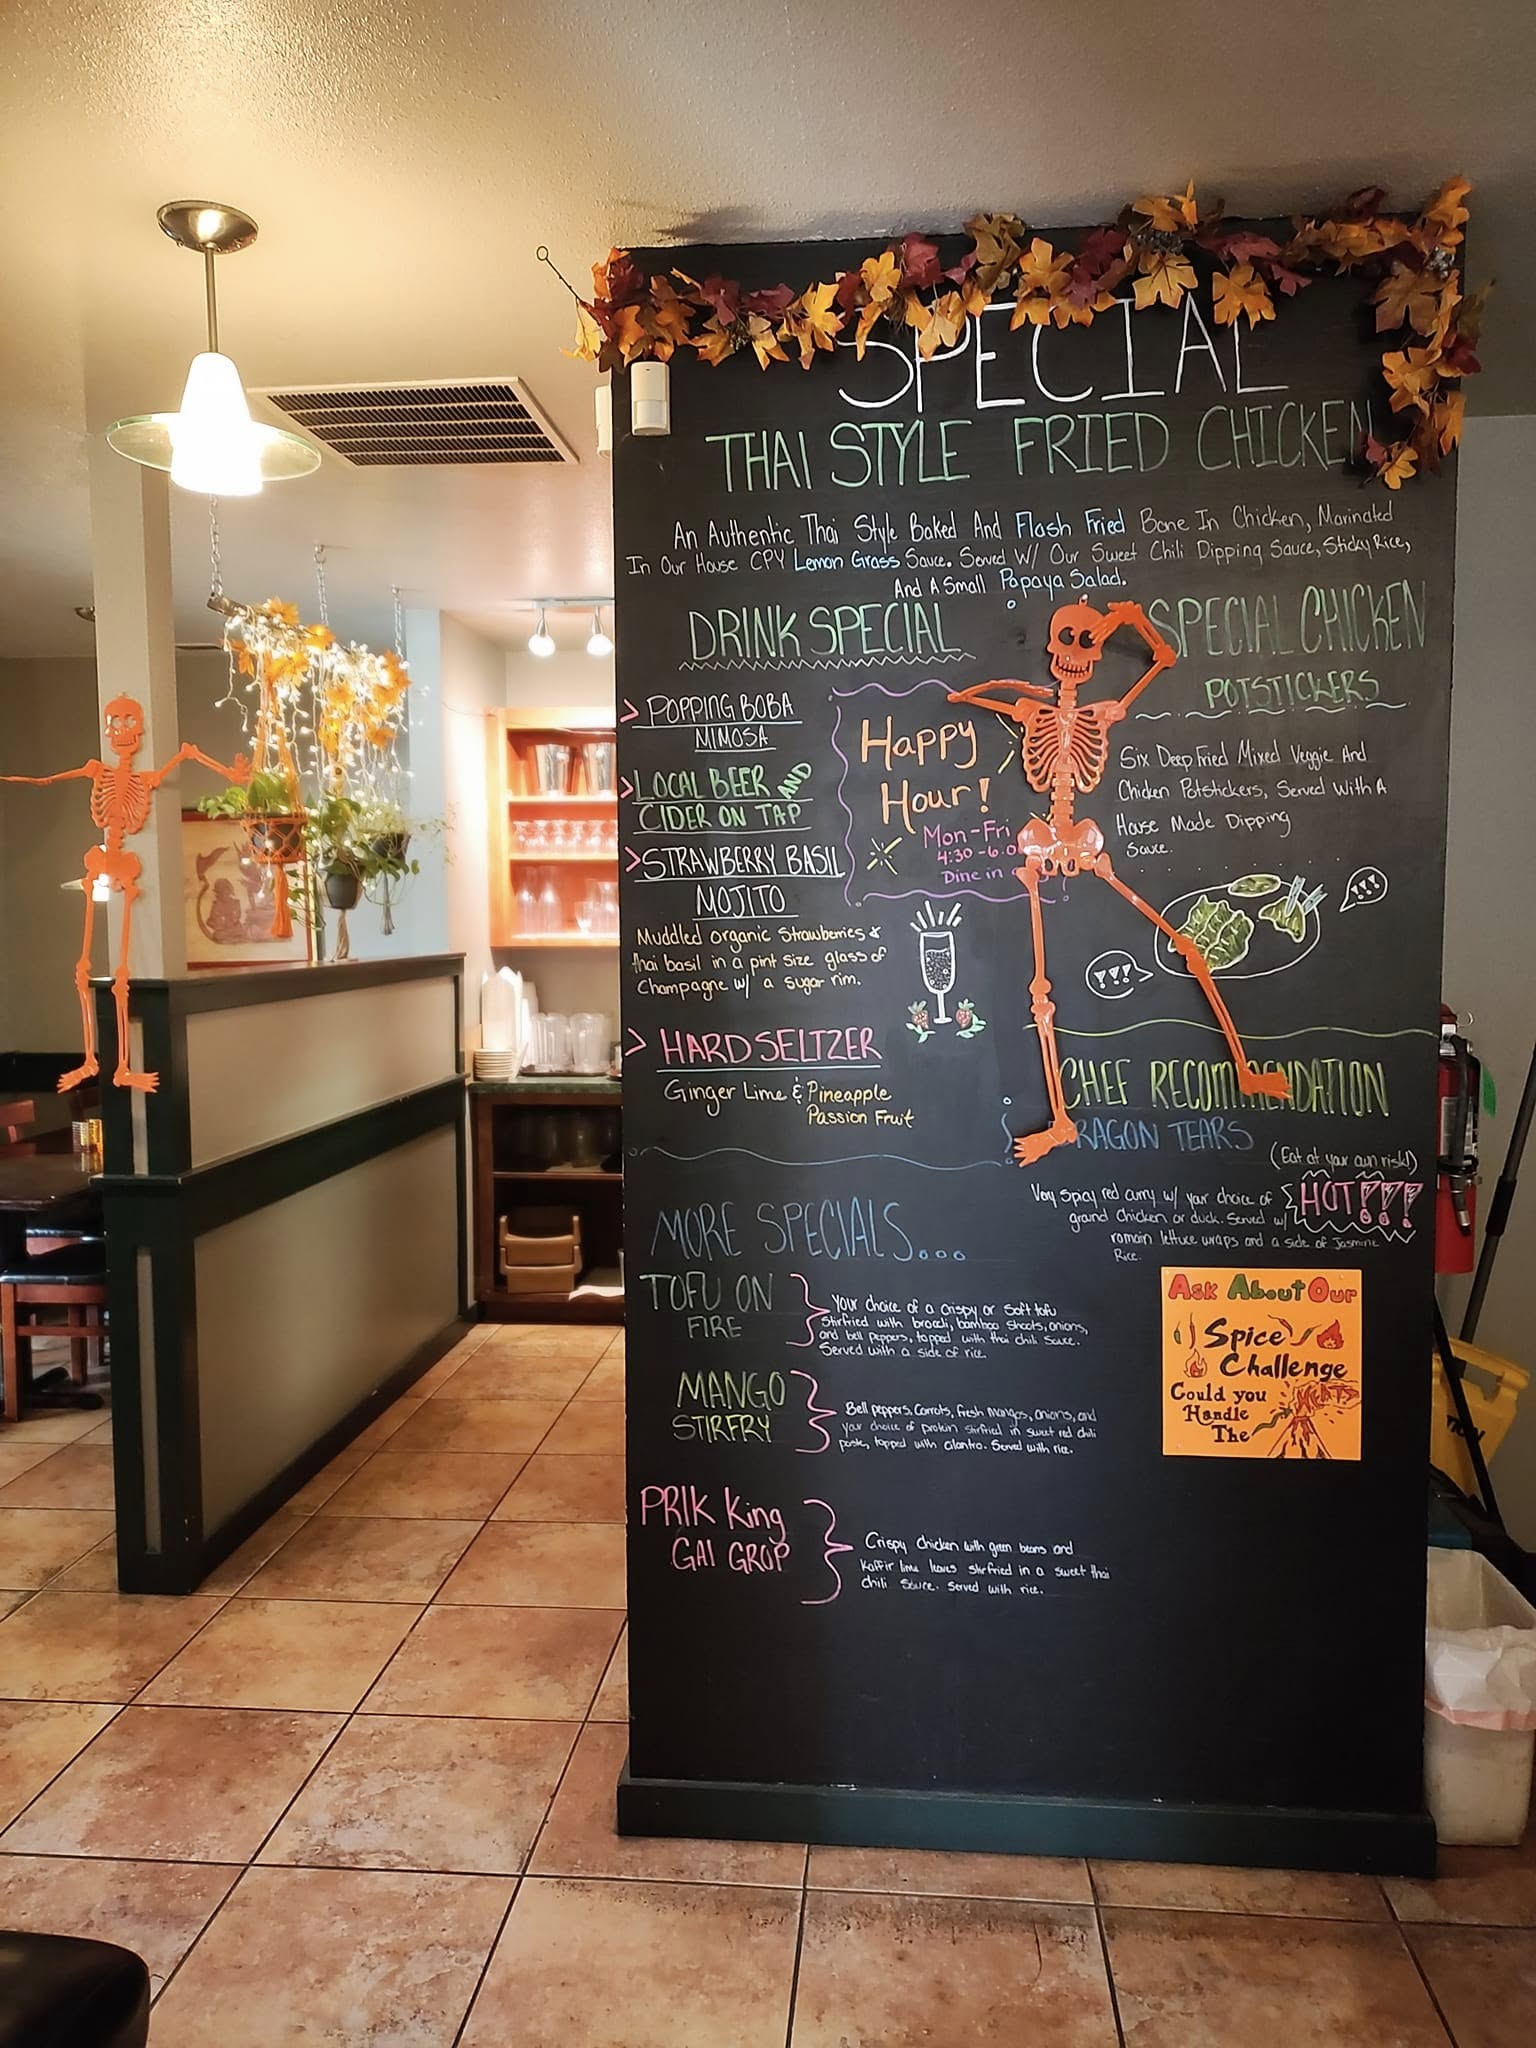 SPECIAL
THAI STYLE FRIED CHICKEN
An Authentic Thai Style Baked And Flash Fried Bone In Chicken, Marinated
In Our House CPY Lemon Grass Sauce. Served W/ Our Sweet Chili Dipping Sauce, Sticky Rice,
And A Small Papaya Salad.
DRINK SPECIAL
> POPPING BOBA
MIMOSA
> LOCAL BEER AND
CIDER ON TAP
> STRAWBERRY BASIL
MOJITO
Muddled organic strawberries &
thai basil in a pint size glass of
Champagne w/ a sugar rim.
> HARD SELTZER
Ginger Lime & Pineapple
Passion Fruit
Happy
Hour!
Mon-Fri
4:30-6:0
Dine in
SPECIAL CHICKEN
POTSTICKERS
Six Deep Fried Mixed Veggie And
Chicken Potstickers, Served With A
House Made Dipping
Sauce.
!!!
!!!
CHEF RECOMMENDATION
DRAGON TEARS
(Eat at your own risk!)
Very spicy red curry w/ your choice of
ground chicken or duck. Served w/
romain lettuce wraps and a side of Jasmine
Rice.
HOT!!!
MORE SPECIALS...
TOFU ON
FIRE
Your choice of a crispy or soft tofu
stirfried with brocoli, bamboo shoots, onions,
and bell peppers, topped with thai chili sauce.
Served with a side of rice.
MANGO
STIRFRY
Bell peppers, carrots, fresh mangos, onions, and
your choice of protein stirfried in sweet red chili
paste, topped with cilantro. Served with rice.
PRIK King
GAI GROP
Crispy chicken with green beans and
kaffir lime leaves stirfried in a sweet thai
chili sauce. Served with rice.
Ask About Our
Spice
Challenge
Could you
Handle
The
HEAT?